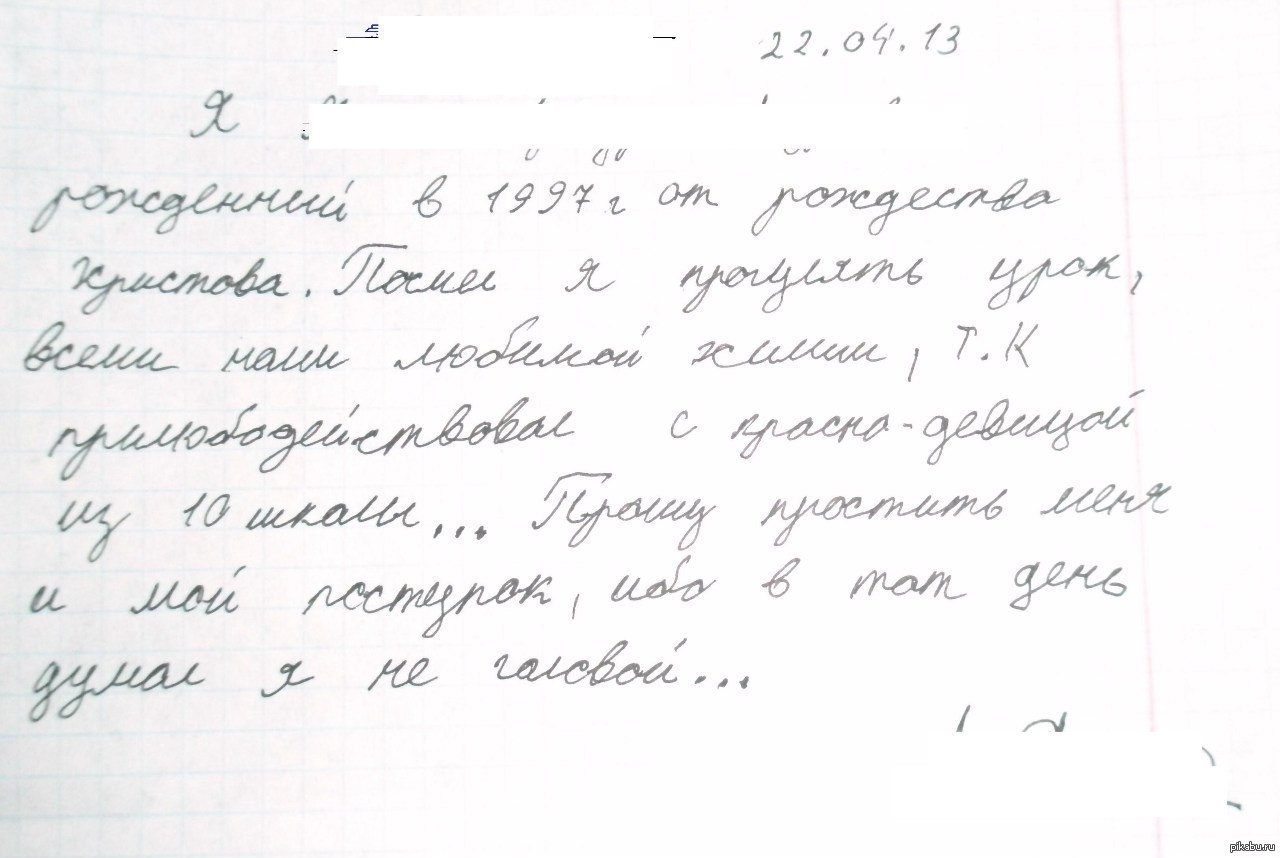 22.04.13
Я
рожденный в 1997г от рождества
Христова. Посмел я прогулять урок,
всеми нами любимой химии, Т.К
прилюбодействовал с красна-девицой
из 10 школы... Прошу простить меня
и мой поступок, ибо в тот день
думал я не головой...
pikabu.ru